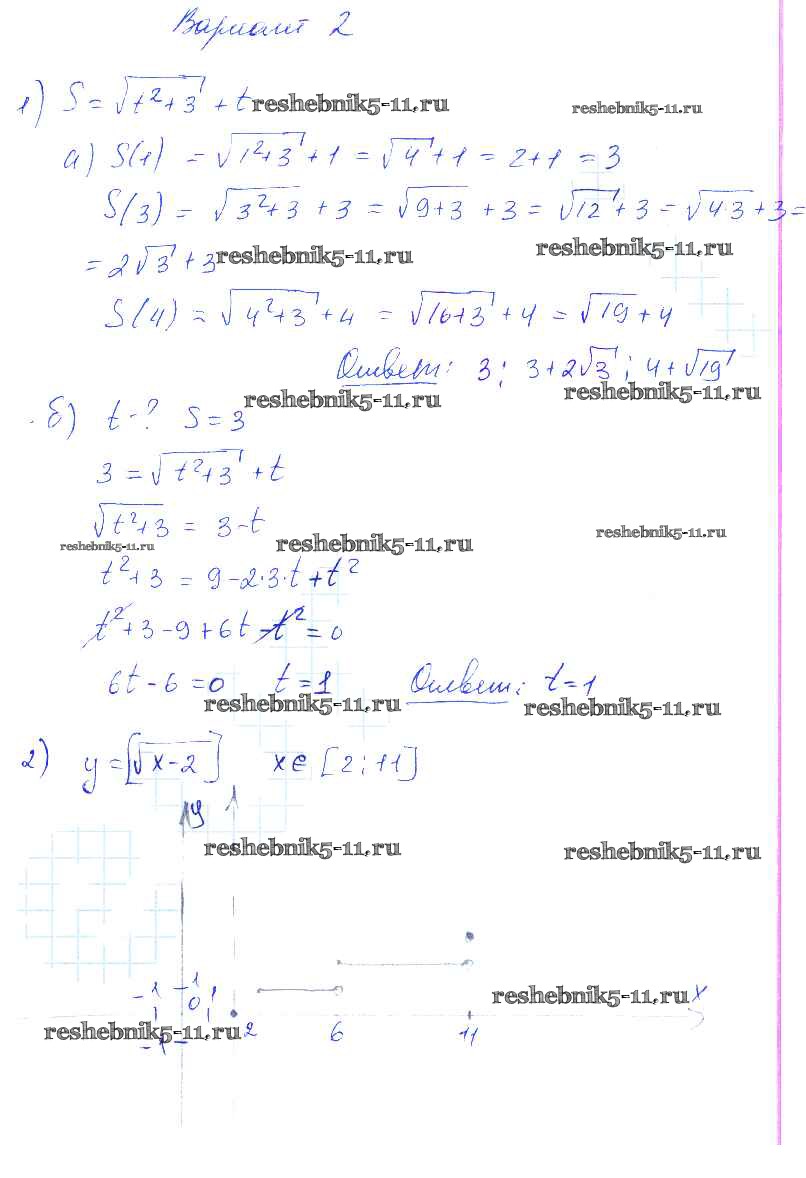 Вариант 2
1) S = √(t²+3) + t reshebnik5-11.ru reshebnik5-11.ru
а) S(1) = √(1²+3) + 1 = √4 + 1 = 2+1 = 3
S(3) = √(3²+3) + 3 = √(9+3) + 3 = √12 + 3 = √(4·3) + 3 =
= 2√3 + 3 reshebnik5-11.ru reshebnik5-11.ru
S(4) = √(4²+3) + 4 = √(16+3) + 4 = √19 + 4
Ответ: 3; 3+2√3; 4+√19
reshebnik5-11.ru reshebnik5-11.ru
б) t-? S=3
3 = √(t²+3) + t
√(t²+3) = 3-t
reshebnik5-11.ru reshebnik5-11.ru reshebnik5-11.ru
t²+3 = 9-2·3·t+t²
t²+3-9+6t-t²=0
6t-6=0 t=1 Ответ: t=1
reshebnik5-11.ru reshebnik5-11.ru
2) y=[√(x-2)] x∈[2;11]
y
reshebnik5-11.ru reshebnik5-11.ru
-1 -1
0 1
reshebnik5-11.ru x
reshebnik5-11.ru 2 6 11